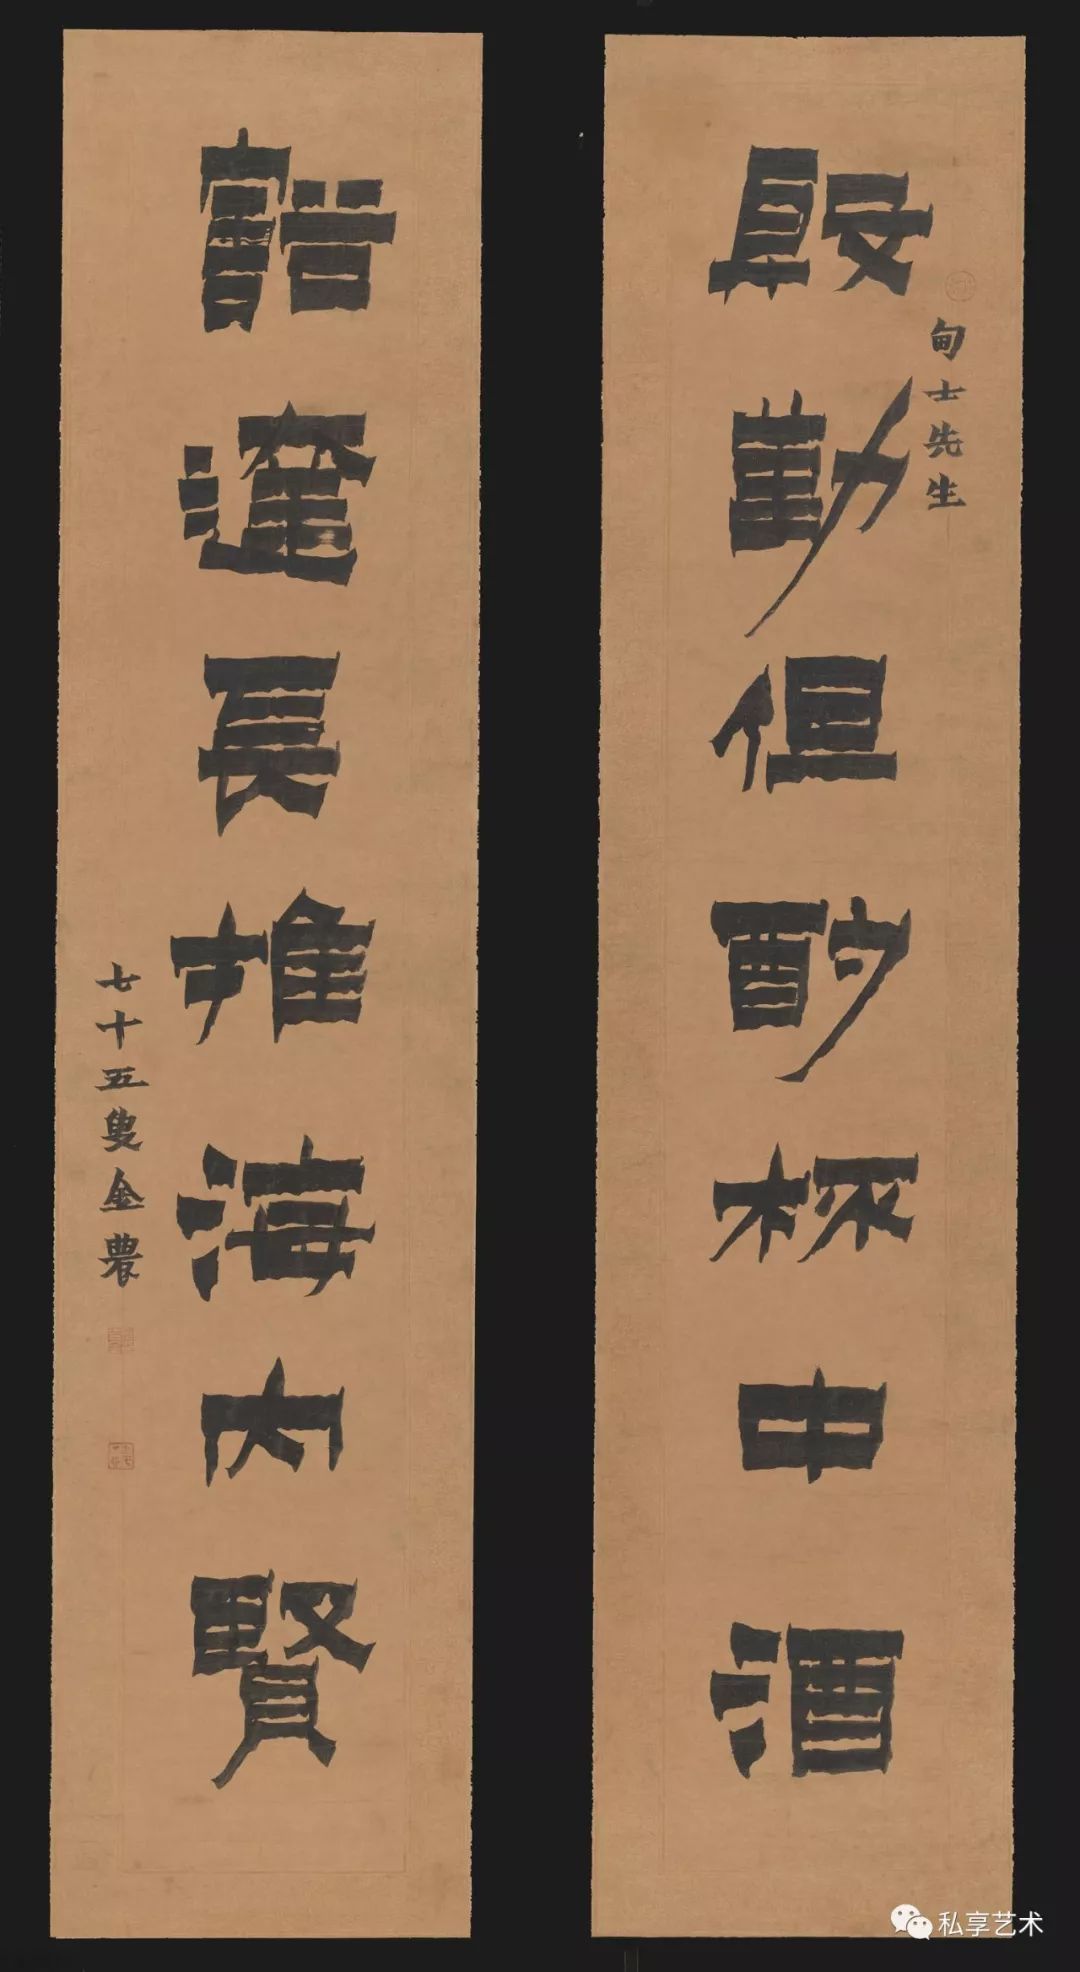 甸士先生
殷勤但酌杯中酒
豁達長推海内賢
七十五叟金農
私享艺术